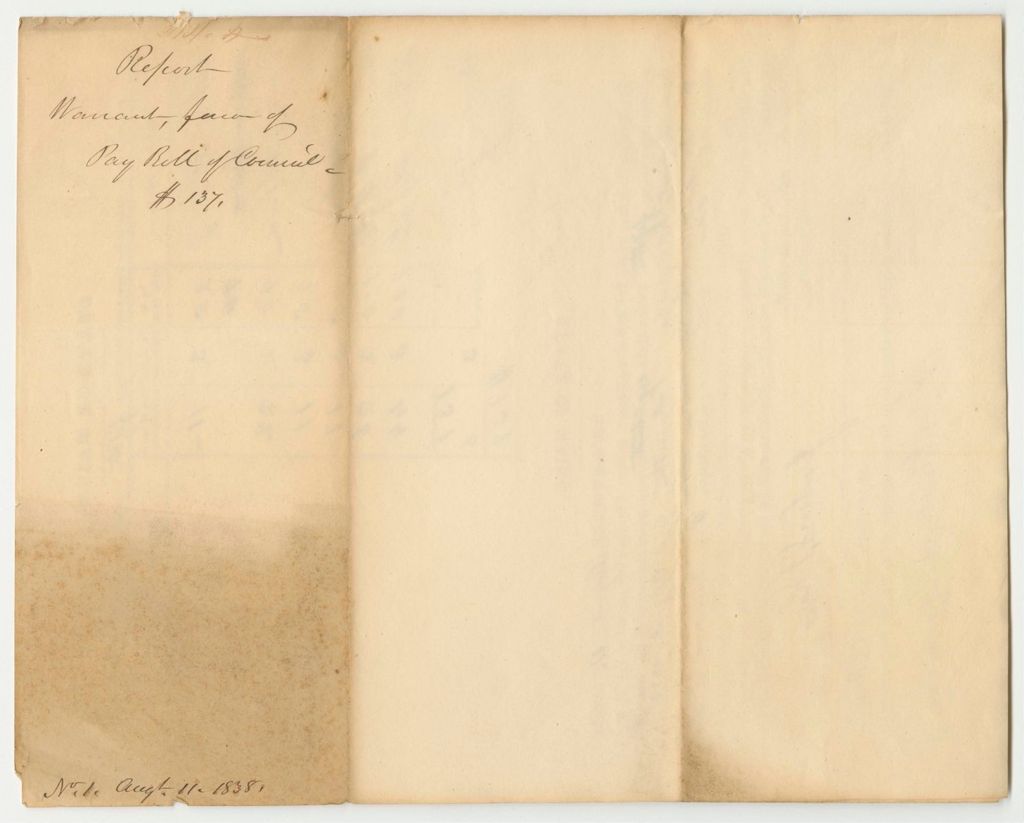 Report
Warrant, favor of
Pay Roll of Council
$137.
No. 1. Augt. 11. 1838.